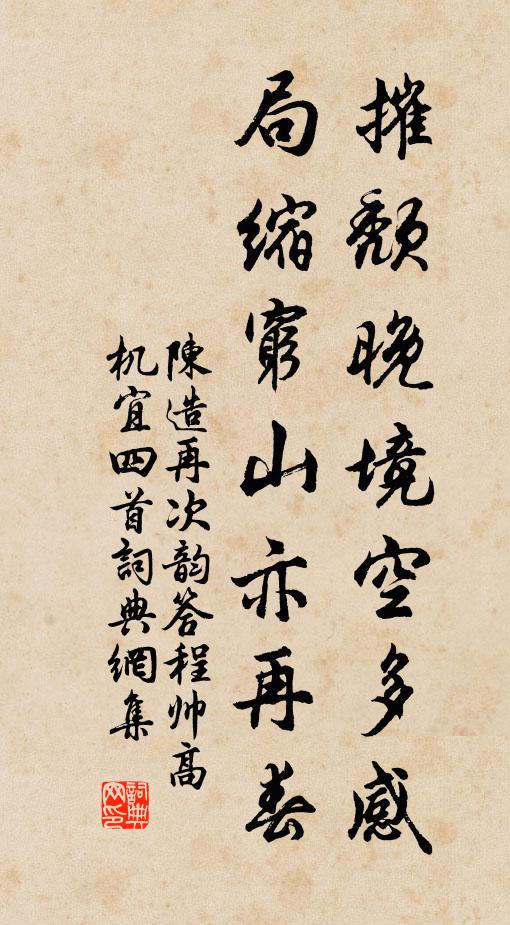 摧頹晚境空多感
局縮窮山亦再春
陳造再次韵答程帅高
机宜四首詞典網集
詞典网印